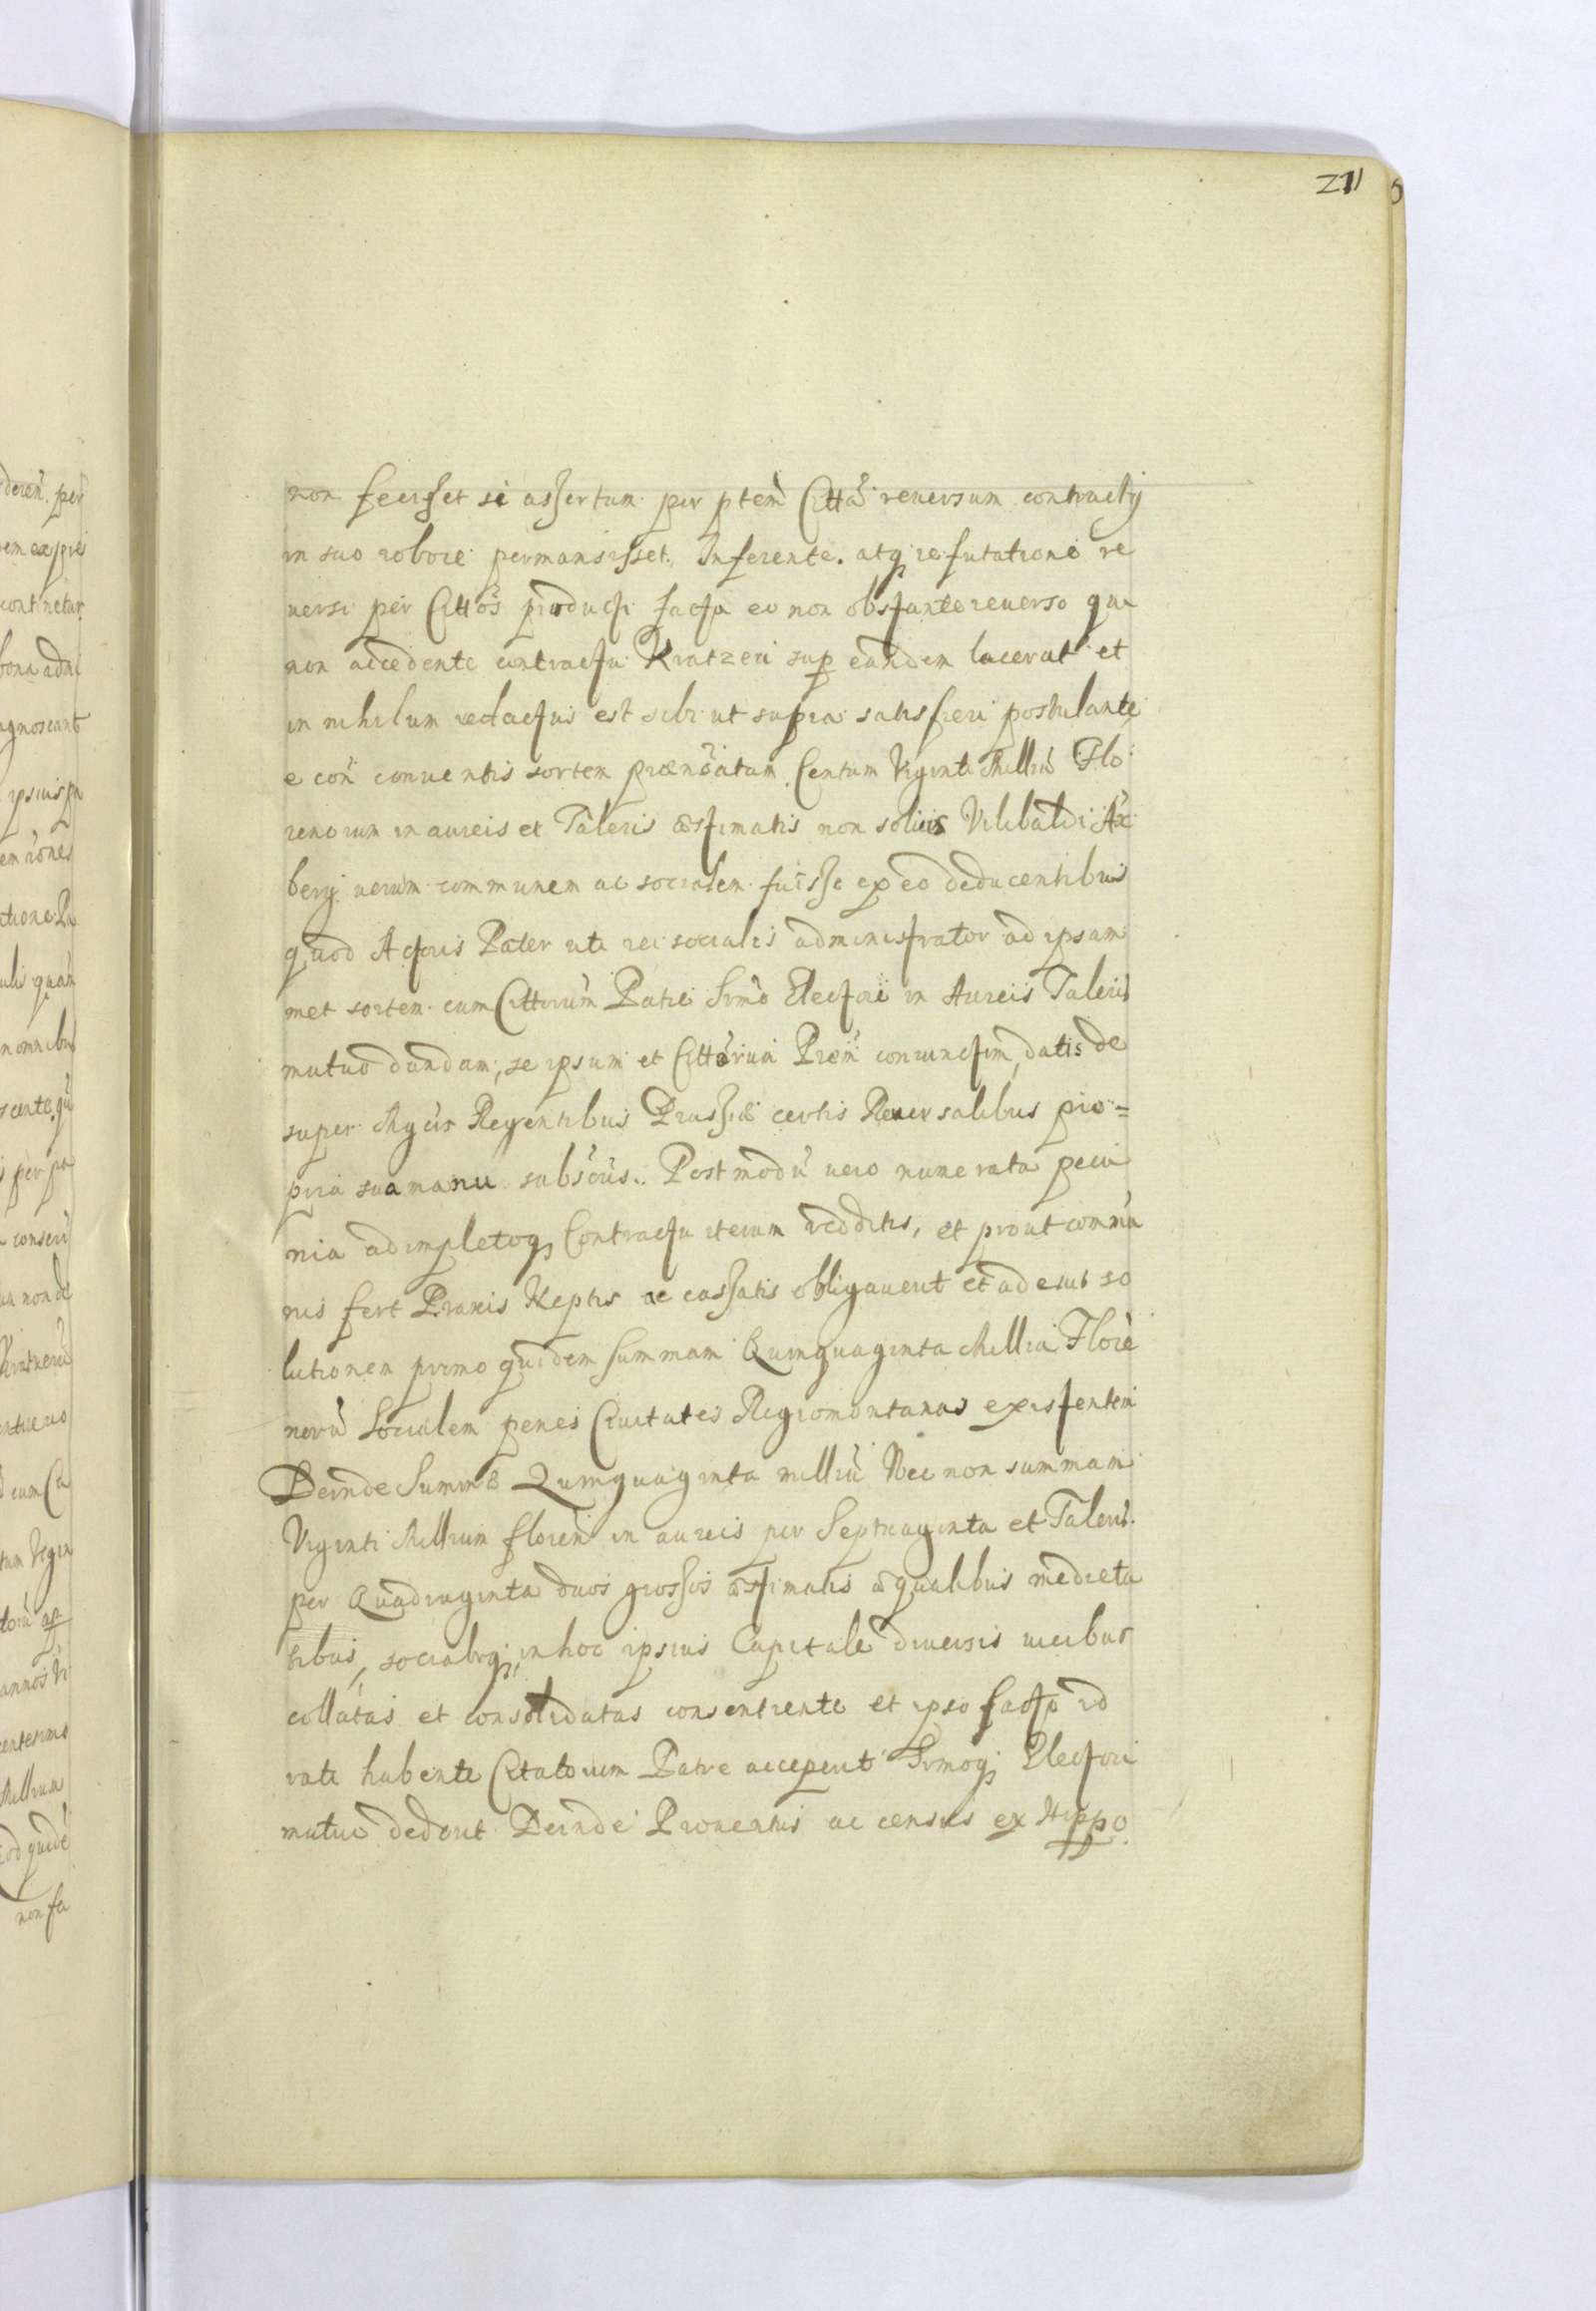 211
non fecisset si assertum per ptem Citta reversum contractŋ
in suo robore permansisset. Inferente. atq; refutatione re
versi per Cittos producti facta eo non obstante reverso qui
non accedente contractu Kratzeri sup eandem lacerat et
in nihilum redactus est sibi ut supra satisfieri postulante
e con conventis sortem prænoiatam Centum Viginti Milliu Flo
renorum in aureis et Taleris æstimatis non solius Vilibaldi Ax
berg verum communem ac socialem fuisse ex eo deducentibus
quod Actoris Pater uti rei socialis administrator ad ipsam
met sortem cum Cittorum Patre Srmo Electori in Aureis Taleris
mutuo dandam, se ipsum et Cittorum Prem coniunctim, datis de
super Mgcis Regentibus Prussiæ certis Reversalibus pro=
pria sua manu subscris. Postmodu vero numerata pecu
nia adimpletoq; Contractu iterum redditis, et prout commu
nis fert Praxis Reptis ac cassatis obligaverit et ad eius so
lutionem primo quidem summam Quinquaginta Millia Flore
noru Socialem penes Civitates Regiomontanas existentem
Deinde Summæ Quinquaginta milliu Nec non summam
Viginti Millium floren in aureis per Septuaginta et Taleris
per Quadraginta duos grossos æstimatis æqualibus medieta
tibus, socialiq; in hoc ipsius Capitale diversis vicibus
collatas et consolidatas consentiente et ipso facto id
rati habente Citatorum Patre acceperit Srmoq; Electori
mutuo dederit Deinde Proventus ac census ex Hippo